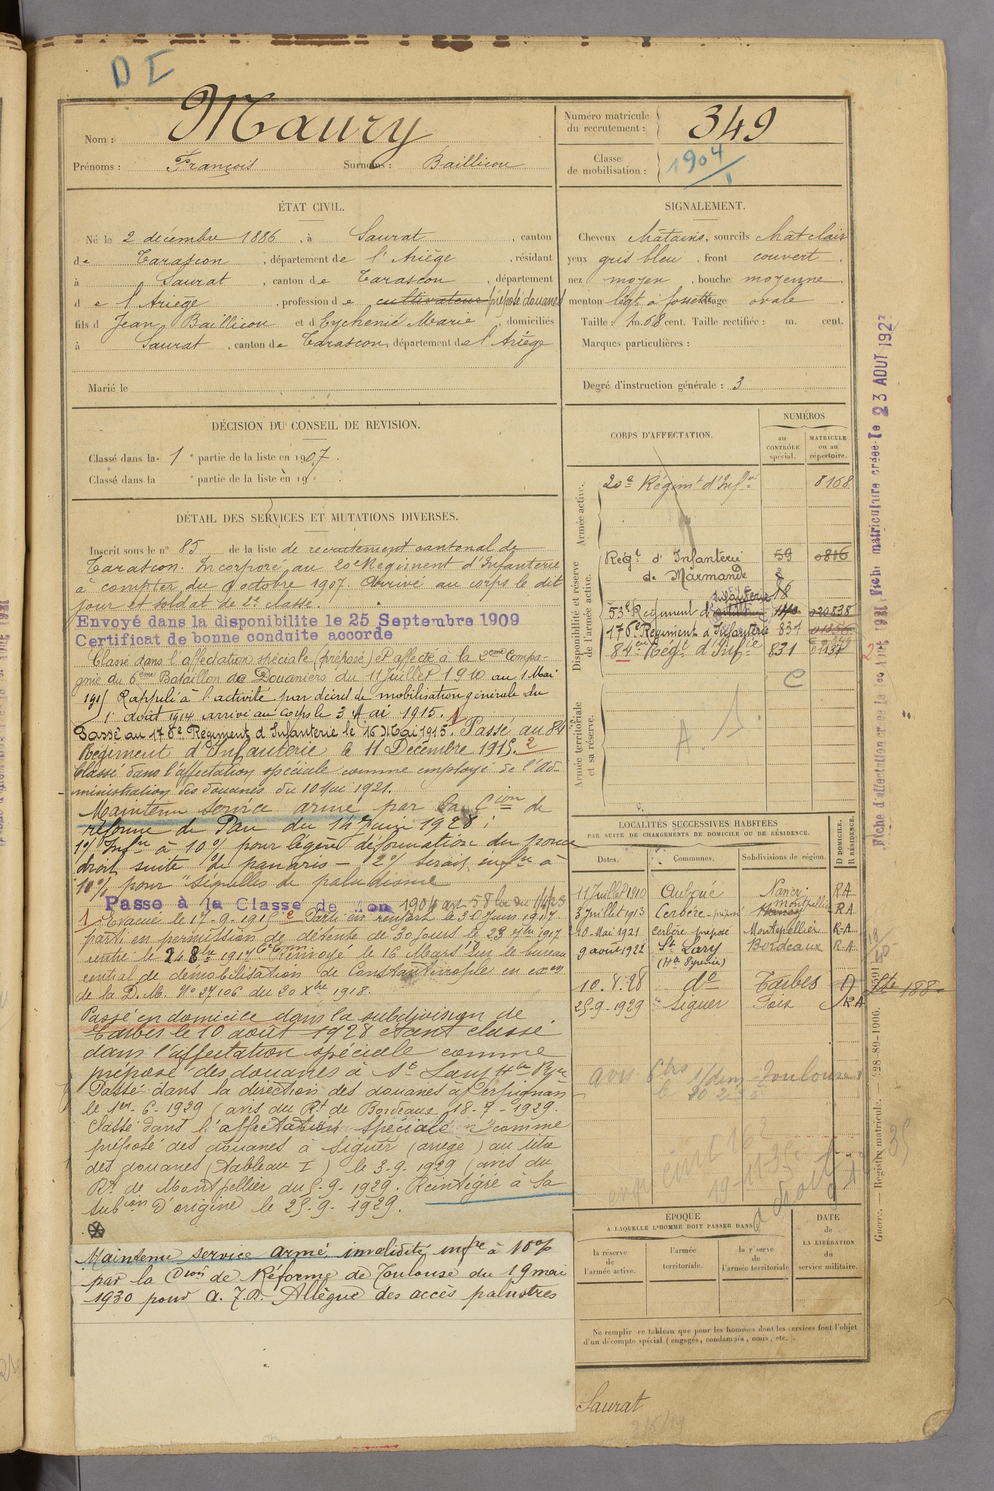 D I
Nom : Maury
Prénoms : François Surnoms : Baillicou
Numéro matricule du recrutement : 349
Classe de mobilisation : 1904
ÉTAT CIVIL.
Né le 2 décembre 1886, à Saurat, canton
de Tarascon, département de l'Ariège, résidant
à Saurat, canton de Tarascon, département
de l'Ariège, profession de cultivateur préposé douanes
fils d Jean Baillicou et d Eychenié Marie domiciliés
à Saurat, canton de Tarascon, département de l'Ariège
Marié le
SIGNALEMENT.
Cheveux châtains, sourcils chât clair
yeux gris bleu, front couvert,
nez moyen, bouche moyenne,
menton légt à fossette visage ovale
Taille : 1 m. 68 cent. Taille rectifiée : m. cent.
Marques particulières :
Degré d'instruction générale : 3
DÉCISION DU CONSEIL DE REVISION.
Classé dans la 1e partie de la liste en 1907.
Classé dans la e partie de la liste en 19 .
DÉTAIL DES SERVICES ET MUTATIONS DIVERSES.
Inscrit sous le n° 85 de la liste de recrutement cantonal de
Tarascon. Incorporé au 20e Régiment d'Infanterie
à compter du octobre 1907. Arrivé au corps le dit
jour et soldat de 2e classe.
Envoyé dans la disponibilite le 25 Septembre 1909
Certificat de bonne conduite accorde
Classé dans l'affectation spéciale (préposé) et affecté à la 2eme Compa-
gnie du 6eme Bataillon de Douaniers du 11 Juillet 1910 au 1 Mai
1915 Rappelé à l'activité par décret de mobilisation générale du
1 août 1914 arrivé au corps le 3 Mai 1915. 1
Passé au 176e Régiment d'Infanterie le 16 Mai 1915. Passé au 84e
Régiment d'Infanterie le 11 Décembre 1915. 2
Classé dans l'affectation spéciale comme employé de l'Ad-
ministration des douanes du 10 Mai 1921.
Maintenu service armé par la Cion de
réforme de Pau du 14 Juin 1928 :
1° Infre à 10% pour légère déformation du pouce
droit suite de panaris - 2° serait infre à
10% pour "séquelles de paludisme
Passe à la Classe de Mon 1904 art 58
1 Evacué le 17-9-1915 Parti en renfort le 30 Juin 1917.
parti en permission de détente de 30 jours le 23 1917
rentré le 24 8bre 1917. Renvoyé le 16 Mars sur le bureau
central de démobilisation de Constantinople en exon
de la D.M. N° 27106 du 30 Xbre 1918.
Passé en domicile dans la subdivision de
Tarbes le 10 août 1928 étant classé
dans l'affectation spéciale comme
préposé des douanes à St Lary Hte Pyr
Passé dans la direction des douanes à Perpignan
le 1er-6-1929 (avis du Rt de Bordeaux 18-7-1929.
Classé dans l'affectation spéciale comme
préposé des douanes à Siguer (ariège) au titre
des douanes (Tableau I) le 3-9-1929 (avis du
Rt de Montpellier du 5-9-1929. Réintégré à sa
subion d'origine le 25-9-1929.
Maintenu service armé, invalidité infre à 10%
par la Cion de Réforme de Toulouse du 19 mai
1930 pour A.F.A. Allègue des accès palustres
CORPS D'AFFECTATION.
NUMÉROS
au CONTRÔLE spécial.
MATRICULE ou au répertoire.
Armée active.
20e Régimt d'Infie 8168
Disponibilité et réserve de l'armée active.
Régt d'Infanterie 59 0816
de Marmande
53e Régiment d'Infanterie
176e Régiment d'Infanterie 831
84eme Régt d'Infie 831
Armée territoriale et sa réserve.
LOCALITÉS SUCCESSIVES HABITÉES
PAR SUITE DE CHANGEMENTS DE DOMICILE OU DE RÉSIDENCE.
Dates. Communes. Subdivisions de région. D DOMICILE. R RÉSIDENCE.
11 Juillet 1910 Auboué Nancy RA
3 Juillet 1913 Cerbère-préposé Montpellier RA
10 Mai 1921 Cerbère préposé Montpellier R.A
9 août 1922 St Lary Bordeaux R-A
(Hte Pyrénées)
10.8.28 do Tarbes D
25-9-1929 Siguer Foix RA
ÉPOQUE
A LAQUELLE L'HOMME DOIT PASSER DANS
la réserve de l'armée active.
l'armée territoriale.
la réserve de l'armée territoriale
DATE de LA LIBÉRATION du service militaire.
Ne remplir ce tableau que pour les hommes dont les services font l'objet
d'un décompte spécial (engagés, condamnés, omis, etc.).
Saurat
Fiche matriculaire créée le 23 AOUT 192
Guerre. — Registre matricule. — 28-89-1906.